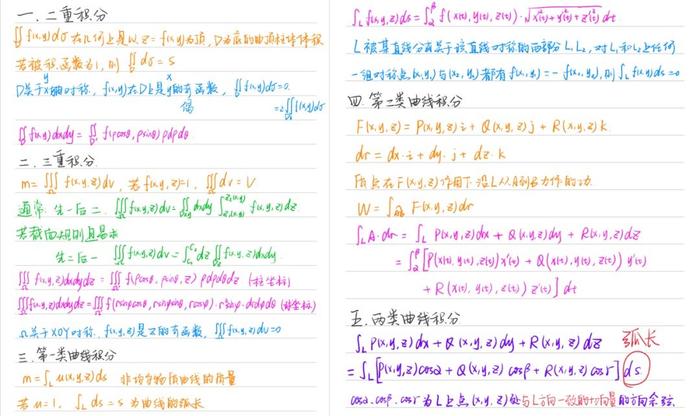 一. 二重积分
∬_D f(x,y)dσ 在几何上是以 z=f(x,y)为顶, D为底的曲顶柱体体积
若被积函数为1, 则 ∬_D dσ = S
D关于x轴对称, f(x,y)在D上是y的奇函数, ∬_D f(x,y)dσ=0.
y x 偶 =2∬_{D₁} f(x,y)dσ
∬_D f(x,y)dxdy = ∬_D f(ρcosθ, ρsinθ) ρdρdθ
二. 三重积分.
m=∭_Ω f(x,y,z)dv, 若f(x,y,z)=1, ∭_Ω dv = V
通常 先一后二. ∭_Ω f(x,y,z)dv = ∬_{Dxy} dxdy ∫_{z₁(x,y)}^{z₂(x,y)} f(x,y,z)dz
若截面规则且易求
先二后一 ∭_Ω f(x,y,z)dv = ∫_{c₁}^{c₂} dz ∬ f(x,y,z)dxdy.
∭_Ω f(x,y,z)dxdydz = ∭_Ω f(ρcosθ, ρsinθ, z) ρdρdθdz (柱坐标)
∭_Ω f(x,y,z)dxdydz = ∭_Ω f(rsinφcosθ, rsinφsinθ, rcosφ)·r²sinφ·drdφdθ (球坐标)
Ω关于XOY对称. f(x,y,z)是z的奇函数, ∭_Ω f(x,y,z)dv=0
三. 第一类曲线积分
m=∫_L u(x,y,z)ds 非均匀物质曲线的质量
若 u=1. ∫_L ds = s 为曲线的弧长
∫_L f(x,y,z)ds = ∫_α^β f(x(t), y(t), z(t))·√(x'²(t)+y'²(t)+z'²(t)) dt
L被某直线分为关于该直线对称的两部分L₁,L₂, 对L₁和L₂上任何
一组对称点(x₁,y₁)与(x₂,y₂)都有f(x₁,y₁)=-f(x₂,y₂), 则∫_L f(x,y)ds=0
四. 第二类曲线积分
F(x,y,z) = P(x,y,z)i + Q(x,y,z)j + R(x,y,z)k
dr = dx·i + dy·j + dz·k
质点在F(x,y,z)作用下沿L从A到B力作的功.
W = ∫_{AB} F(x,y,z)dr
∫_L A·dr = ∫_L P(x,y,z)dx + Q(x,y,z)dy + R(x,y,z)dz
= ∫_α^β [P(x(t), y(t), z(t))x'(t) + Q(x(t), y(t), z(t)) y'(t)
+ R(x(t), y(t), z(t)) z'(t)] dt
五. 两类曲线积分
∫_L P(x,y,z)dx + Q(x,y,z)dy + R(x,y,z)dz 弧长
= ∫_L [P(x,y,z)cosα + Q(x,y,z)cosβ + R(x,y,z)cosr] ds
cosα. cosβ. cosr为L上点(x,y,z)处与L方向一致的切向量的方向余弦.